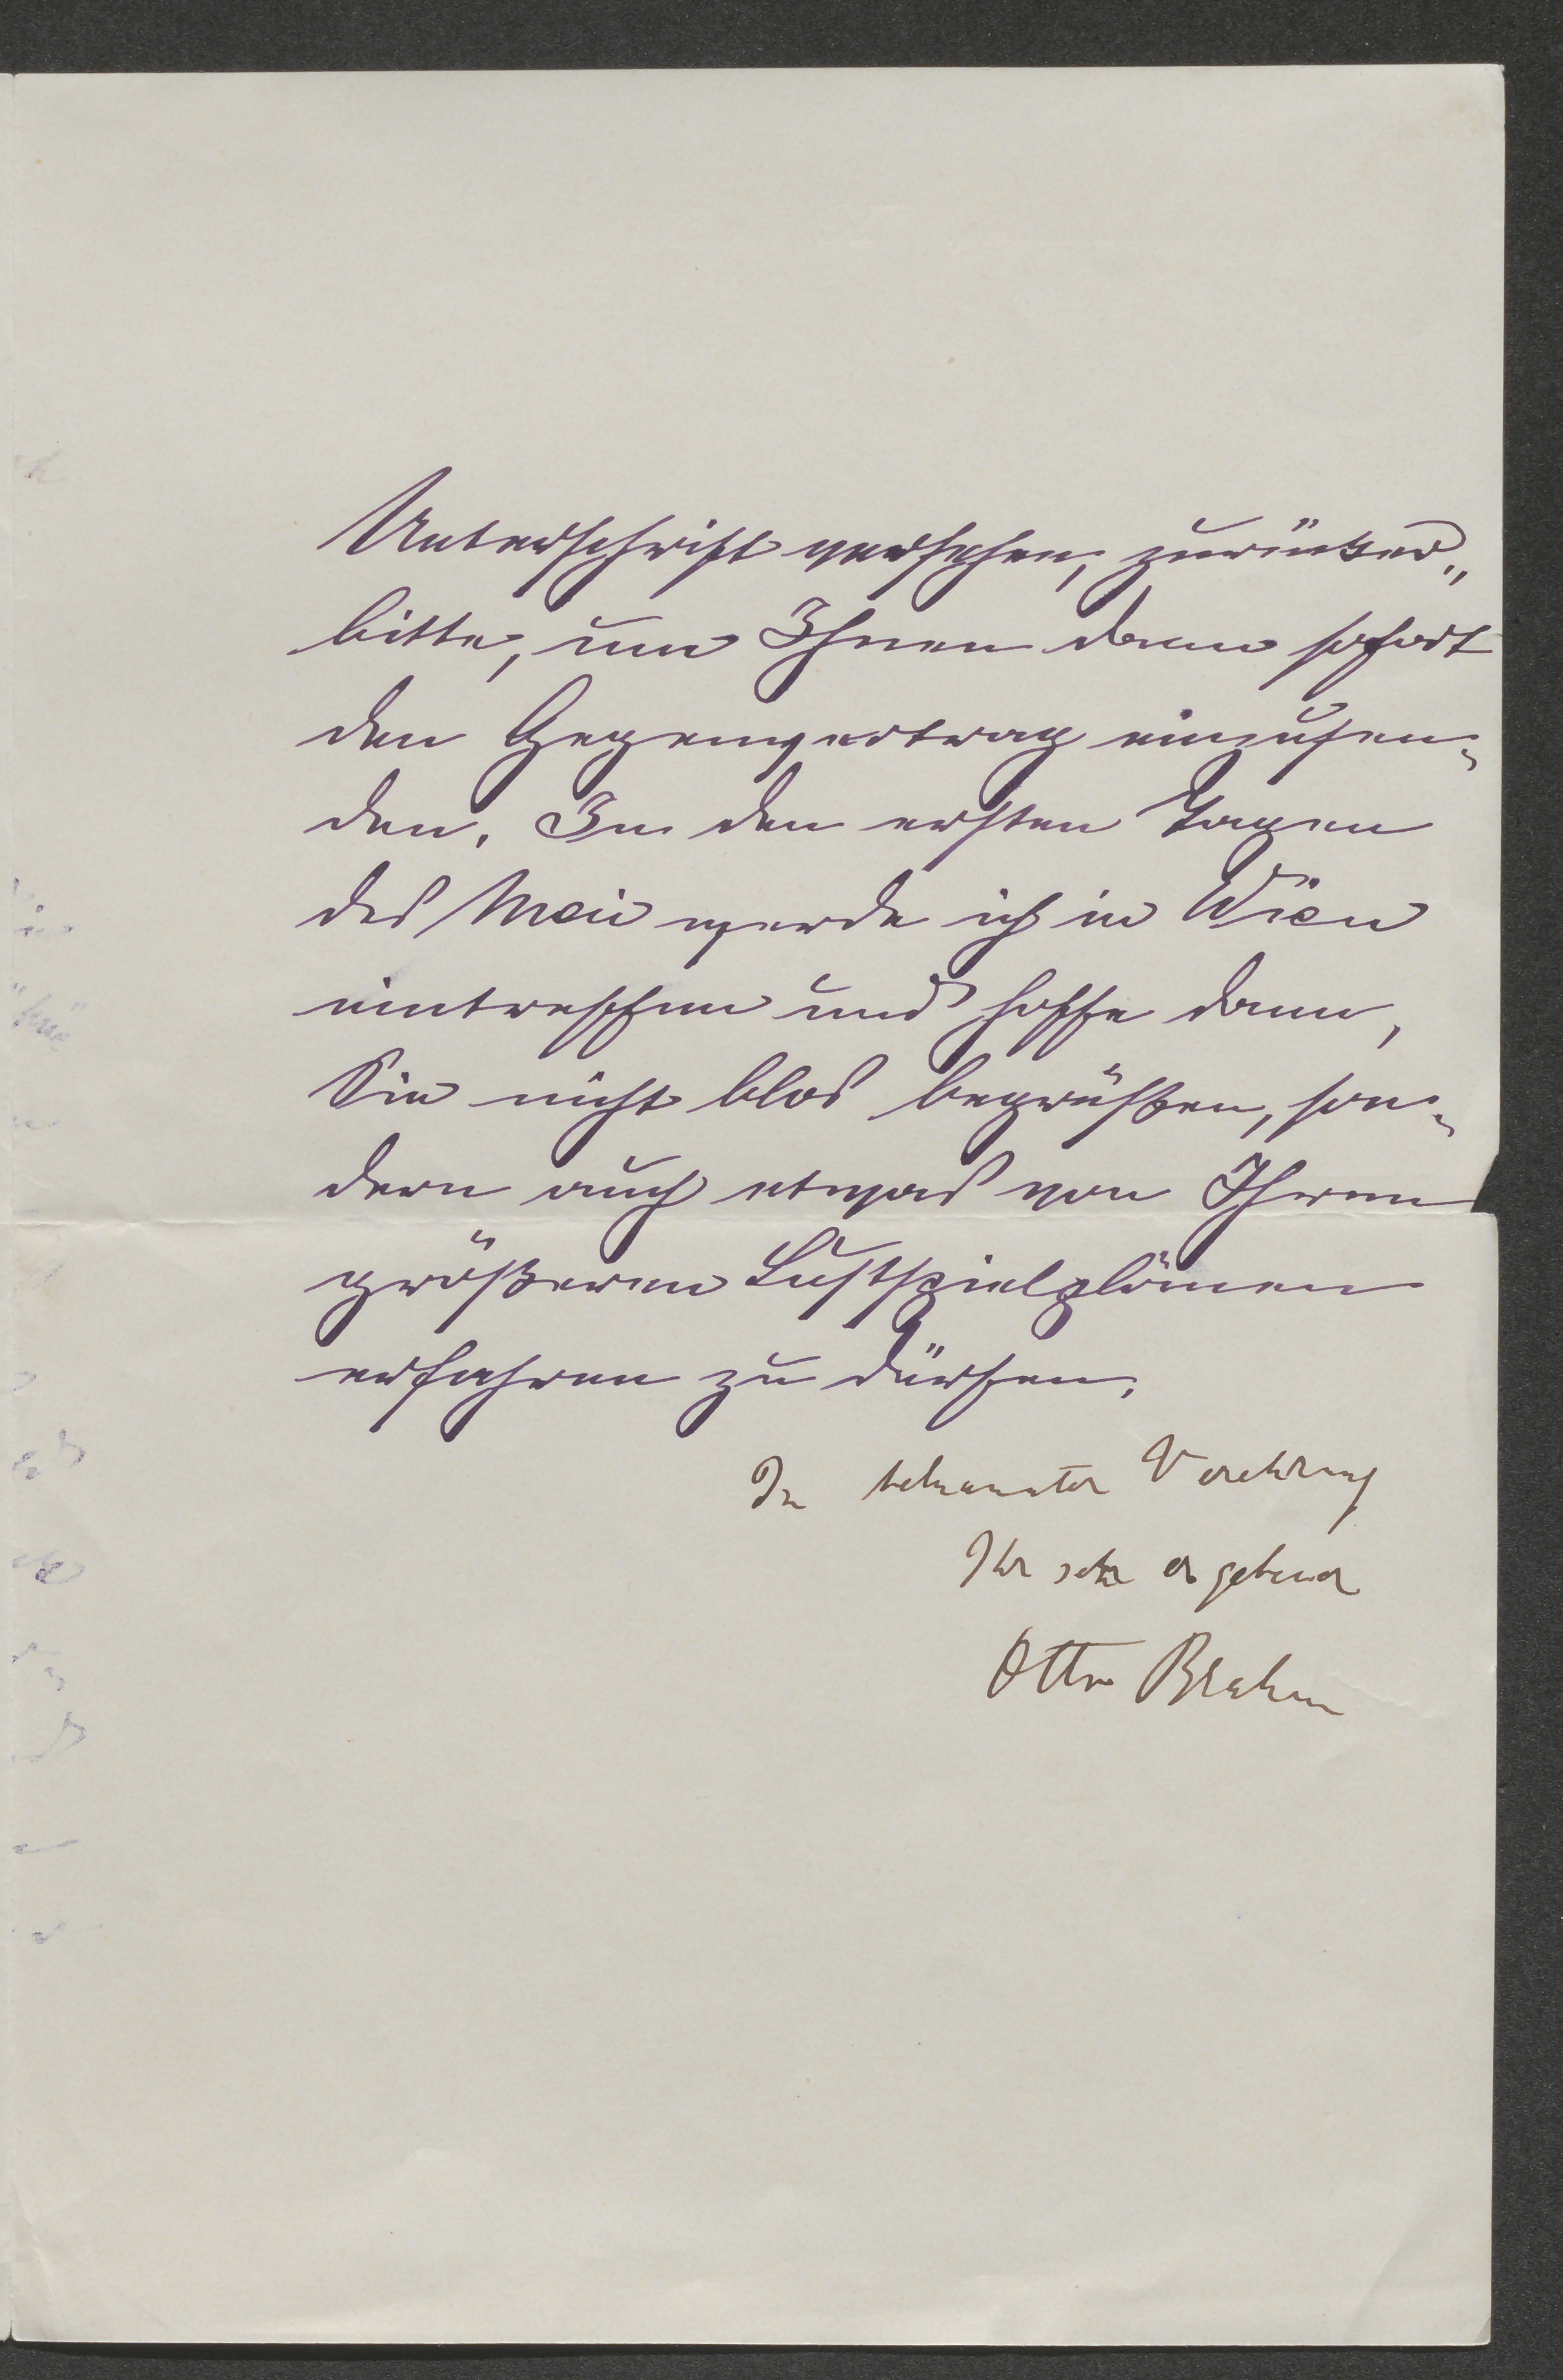 Unterschrift versehen, zurücker„
bitte, um Ihnen dann sofort
den Gegenvertrag einzusen„
den. In den ersten Tagen
des Mai werde ich in Wien
eintreffen und hoffe dann,
Sie nicht blos begrüßen, son„
dern auch etwas von Ihren
größeren Lustspielplänen
erfahren zu dürfen.
In bekannter Verehrung
Ihr sehr ergebener
Otto Brahm